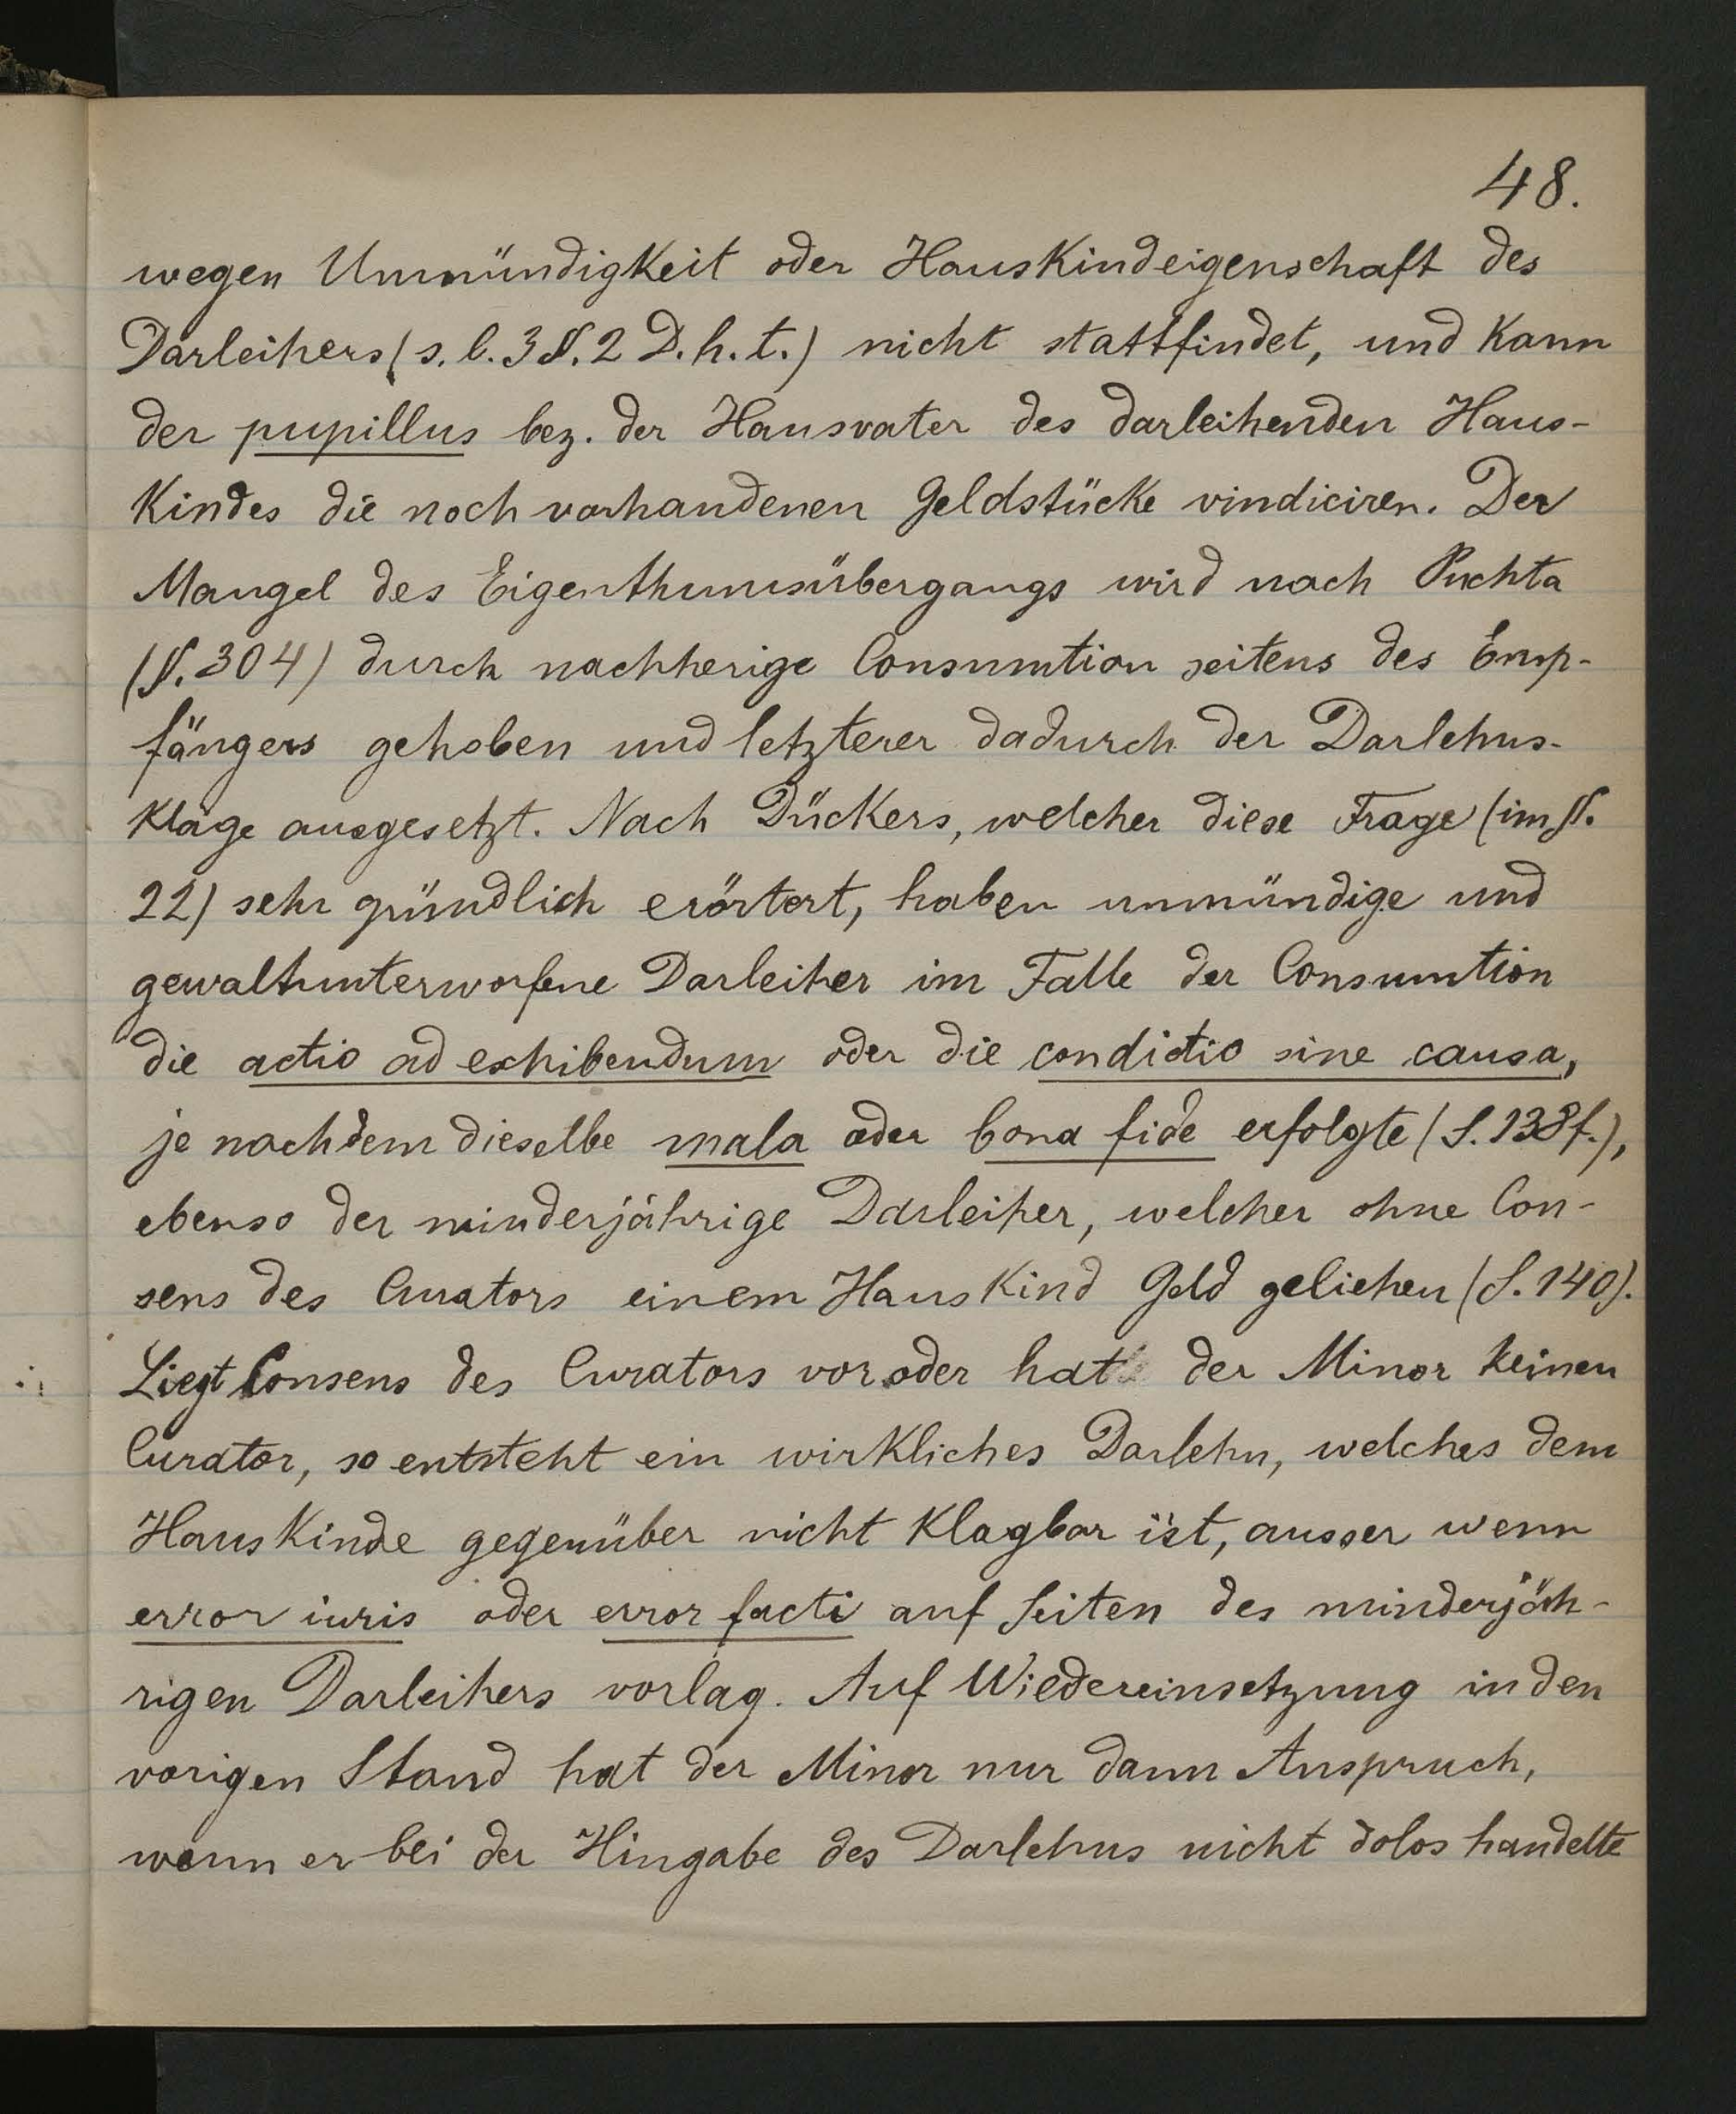 48.
wegen Unmündigkeit oder Hauskindeigenschaft des
Darleihers (s. l. 3 §. 2 D. h. t.) nicht stattfindet, und kann
der pupillus bez. der Hausvater des darleihenden Haus-
kindes die noch vorhandenen Geldstücke vindiciren. Der
Mangel des Eigenthumsübergangs wird nach Puchta
(§. 304) durch nachherige Consumtion seitens des Emp-
fängers gehoben und letzterer dadurch der Darlehns-
klage ausgesetzt. Nach Dückers, welcher diese Frage (im §.
22) sehr gründlich erörtert, haben unmündige und
gewaltunterworfene Darleiher im Falle der Consumtion
die actio ad exhibendum oder die condictio sine causa,
je nachdem dieselbe mala oder bona fide erfolgte (S. 138 f.),
ebenso der minderjährige Darleiher, welcher ohne Con-
sens des Curators einem Hauskind Geld geliehen (S. 140).
Liegt Consens des Curators vor oder hat der Minor keinen
Curator, so entsteht ein wirkliches Darlehn, welches dem
Hauskinde gegenüber nicht klagbar ist, ausser wenn
error iuris oder error facti auf Seiten des minderjäh-
rigen Darleihers vorlag. Auf Wiedereinsetzung in den
vorigen Stand hat der Minor nur dann Anspruch,
wenn er bei der Hingabe des Darlehns nicht dolos handelte